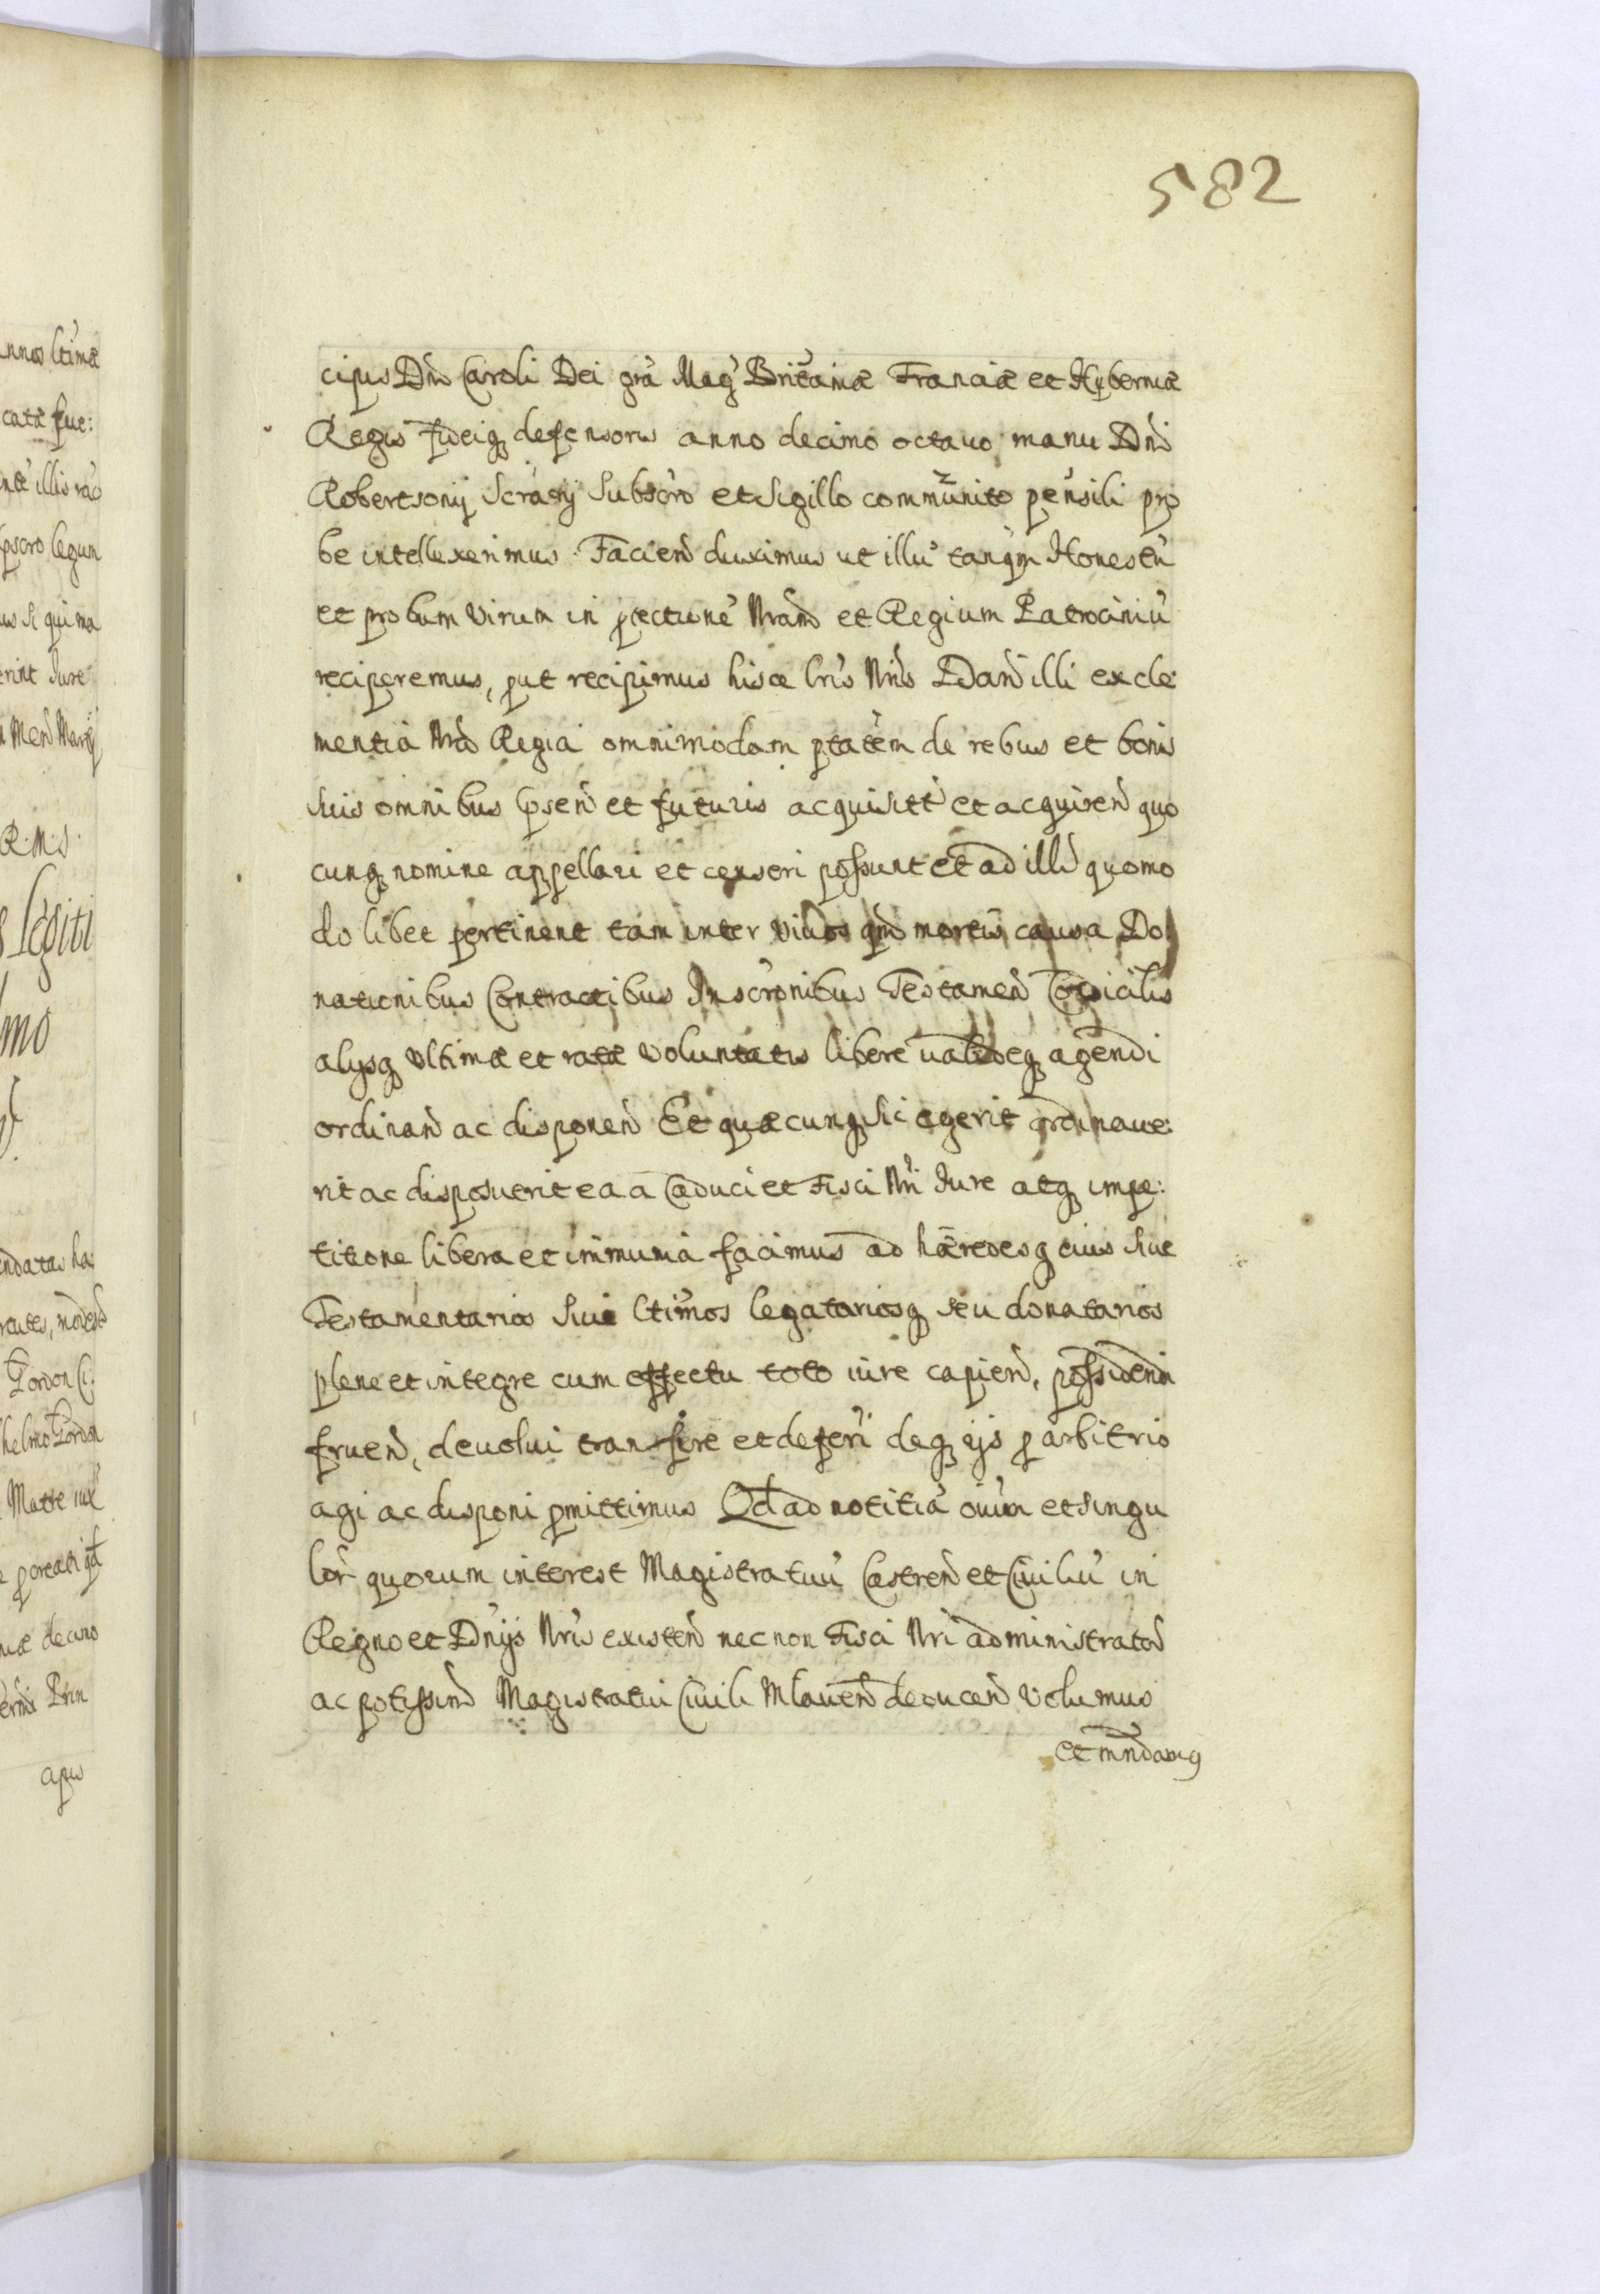 582
cipis Dni Caroli Dei gra Mag Britaniæ Franciæ et Hyberniæ
Regis fideiq defensoris anno decimo octauo manu Dni
Robertsonij Scrarij Subscro et Sigillo communito pensili pro
be intellexerimus. Faciend duximus ut illu tanqm Honestu
et probum Virum in ptectione Nram et Regium Patrociniu
reciperemus, put recipimus hisce lris Nris Dand illi ex cle
mentia Nra Regia omnimodam ptatem de rebus et bonis
suis omnibus psen et futuris acquisit et acquiren quo
cunq nomine appellari et censeri possunt et ad illu quomo
do libet pertinent tam inter Viuos qm mortis causa Do
nationibus Contractibus Inscronibus Testamen Codicilis
alysq Vltimæ et ratæ Voluntatis libere valideq agendi
ordinan ac disponen Et quæcunq sic egerit ordinaue:
rit ac disposuerit ea a Caduci et Fisci Nri Iure atq impe:
titione libera et immunia facimus ad hæredesq eius siue
Testamentarios siue ltimos legatariosq seu donatarios
plene et integre cum effectu toto iure capien, possidendi
fruen, deuolui transfere et deferri deq ijs p arbitrio
agi ac disponi pmittimus Qd ad notitia oium et singu
lor quorum interest Magistratuu Castren et Ciuiliu in
Regno et Dnijs Nris existen nec non Fisci Nri administrator
ac potissim Magistratui Ciuili Mlauien deducen Volumus
et mndamq
annos ltimæ
catæ fue:
pscro legum
us si qui ma
erint Iure
R. M. S.
Legiti
mo
Gordon
helmo Gordon
Matre
næ decimo
Prin
cipis